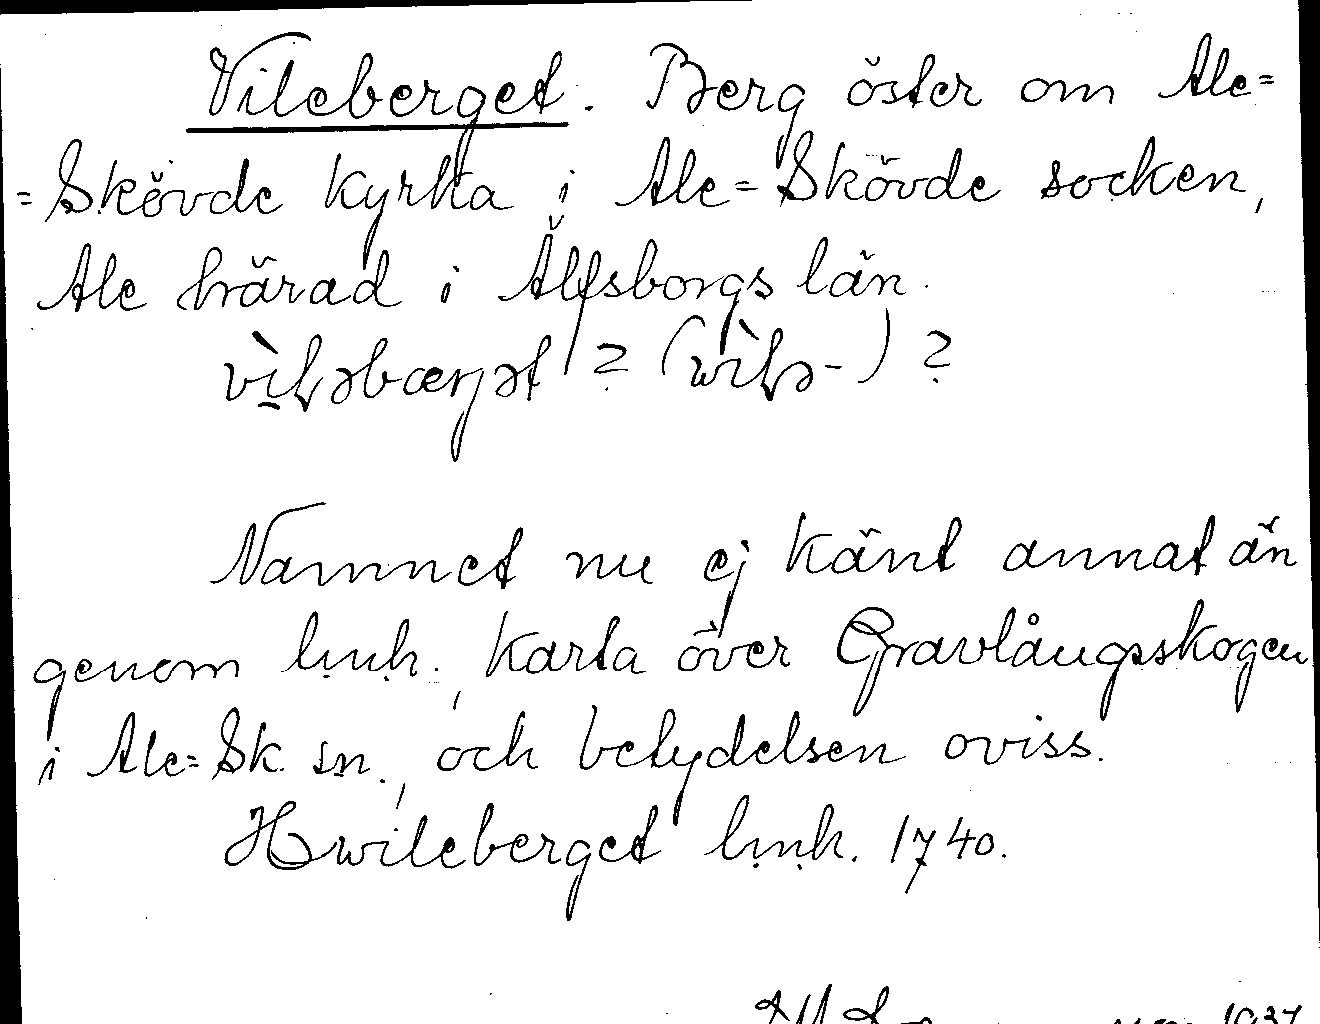 Vileberget. Berg öster om Ale=
=Skövde kyrka i Ale=Skövde socken,
Ale härad i Älfsborgs län.
? ( ) ?
Namnet nu ej känt annat än
genom lmh., karta över Gravlångsskogen
i Ale=Sk. sn., och betydelsen oviss.
Hwileberget lmh. 1740.
1937